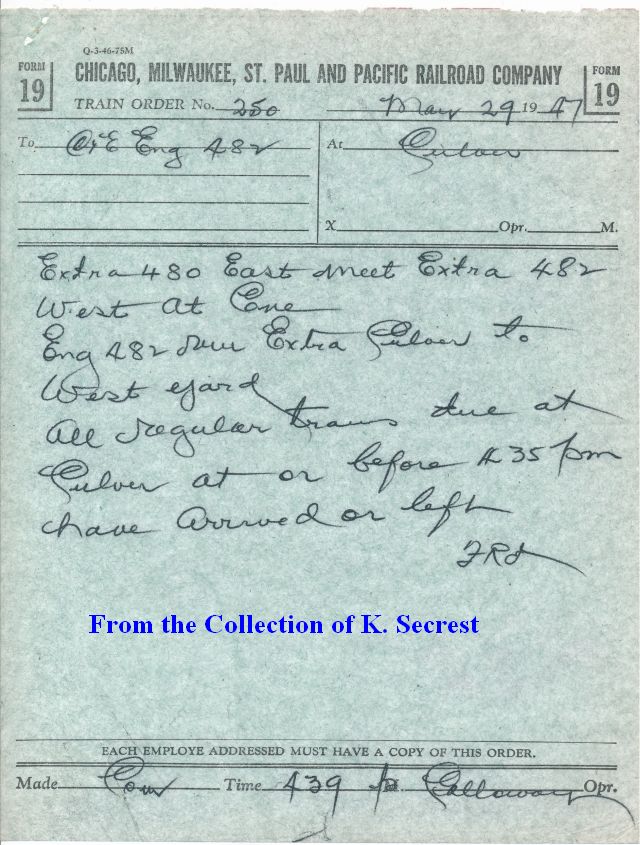 Q-3-46-75M
FORM 19 CHICAGO, MILWAUKEE, ST. PAUL AND PACIFIC RAILROAD COMPANY FORM 19
TRAIN ORDER No. 250 May 29 19 47
To C&E Eng 482 At Gulver
X Opr. M.
Extra 480 East meet Extra 482
West at Cone
Eng 482 run Extra Culver to
West yard
All regular trains due at
Culver at or before 435 pm
have arrived or left
FRD
From the Collection of K. Secrest
EACH EMPLOYE ADDRESSED MUST HAVE A COPY OF THIS ORDER.
Made Com Time 439 P M Galloway Opr.